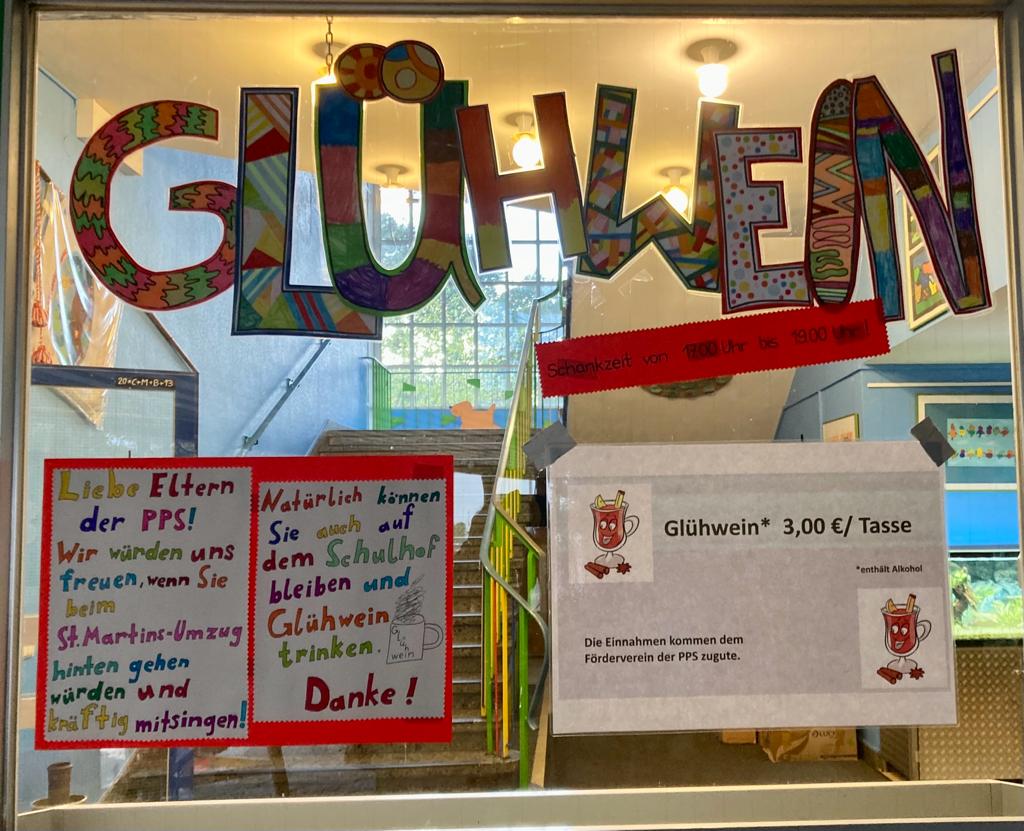 GLÜHWEIN
Schankzeit von 17:00 Uhr bis 19:00 Uhr!
20*C+M+B+13
Liebe Eltern
der PPS!
Wir würden uns
freuen, wenn Sie
beim
St.Martins-Umzug
hinten gehen
würden und
kräftig mitsingen!
Natürlich können
Sie auch auf
dem Schulhof
bleiben und
Glühwein
trinken.
Glüh
wein
Danke!
Glühwein* 3,00 €/ Tasse
*enthält Alkohol
Die Einnahmen kommen dem
Förderverein der PPS zugute.